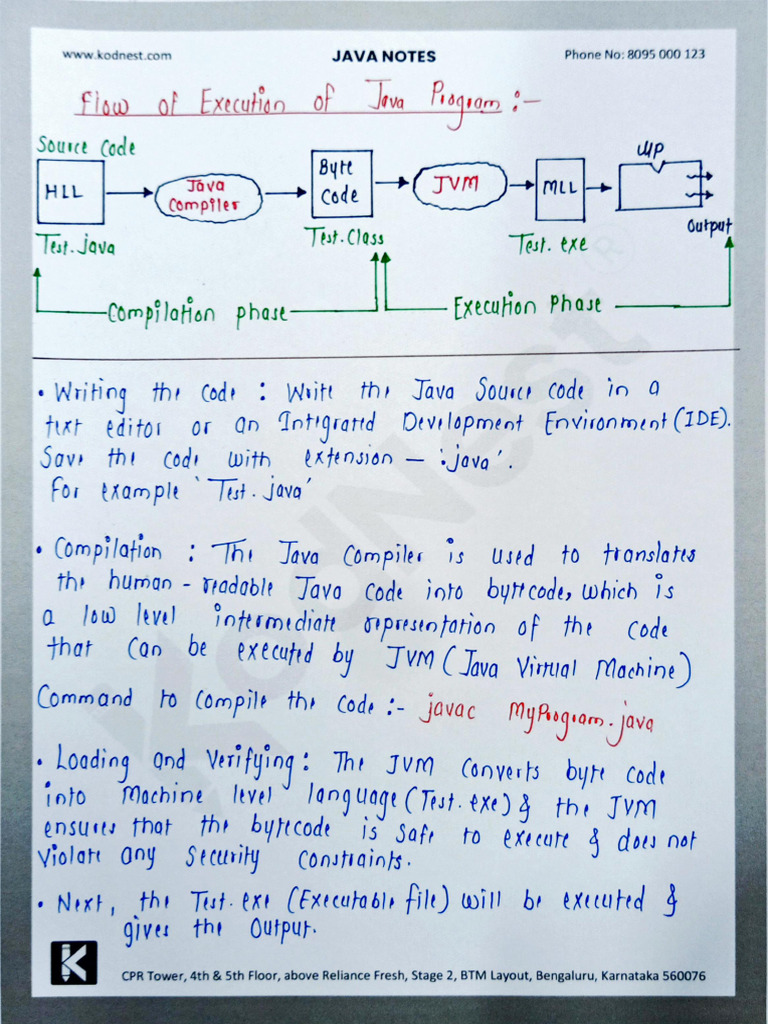 www.kodnest.com JAVA NOTES Phone No: 8095 000 123
Flow of Execution of Java Program :-
Source Code
HLL
Java Compiler
Byte Code
JVM
MLL
MP
Output
Test.java
Test.Class
Test.exe
Compilation phase
Execution Phase
• Writing the code : Write the Java Source code in a
text editor or an Integrated Development Environment (IDE).
Save the code with extension — '.java'.
For example 'Test.java'
• Compilation : The Java Compiler is used to translates
the human - readable Java code into bytecode, which is
a low level intermediate representation of the code
that can be executed by JVM (Java Virtual Machine)
Command to compile the code :- javac MyProgram.java
• Loading and Verifying : The JVM converts byte code
into Machine level language (Test.exe) & the JVM
ensures that the bytecode is safe to execute & does not
violate any security constraints.
• Next, the Test.exe (Executable file) will be executed &
gives the Output.
KodNest
K
CPR Tower, 4th & 5th Floor, above Reliance Fresh, Stage 2, BTM Layout, Bengaluru, Karnataka 560076